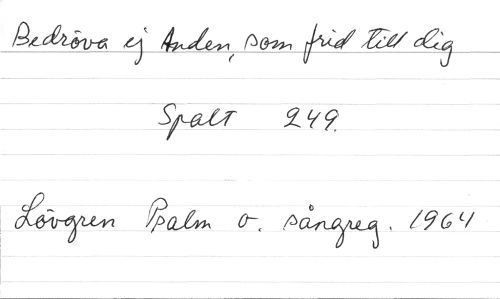 Bedröva ej Anden, som frid till dig
Spalt 249.
Lövgren Psalm o. sångreg. 1964